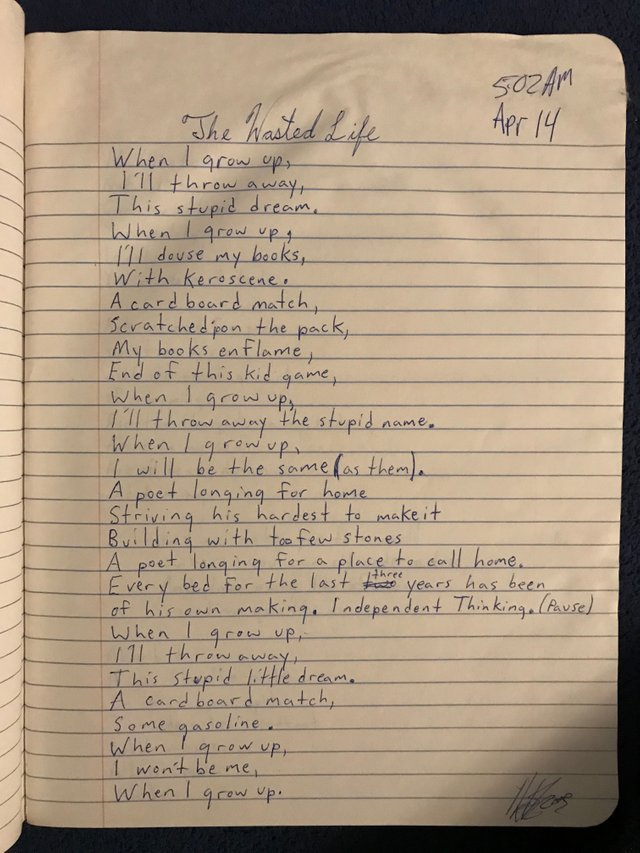 5:02 AM
Apr 14
The Wasted Life
When I grow up,
I'll throw away,
This stupid dream.
When I grow up,
I'll douse my books,
With Keroscene.
A card board match,
Scratched'pon the pack,
My books enflame,
End of this kid game,
When I grow up,
I'll throw away the stupid name.
When I grow up,
I will be the same (as them).
A poet longing for home
Striving his hardest to make it
Building with too few stones
A poet longing for a place to call home.
Every bed for the last three years has been
of his own making. Independent Thinking. (Pause)
When I grow up,
I'll throw away,
This stupid little dream.
A card board match,
Some gasoline.
When I grow up,
I won't be me,
When I grow up.